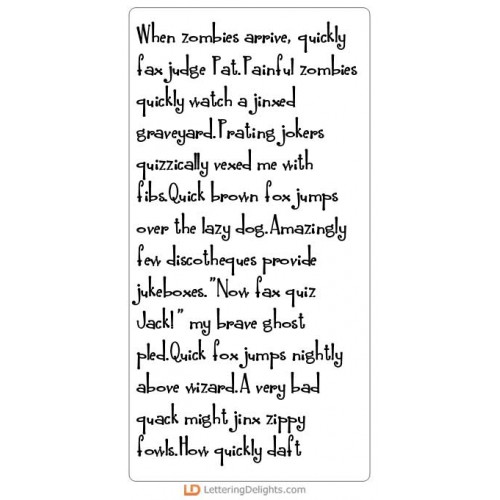 When zombies arrive, quickly
fax judge Pat.Painful zombies
quickly watch a jinxed
graveyard.Prating jokers
quizzically vexed me with
fibs.Quick brown fox jumps
over the lazy dog.Amazingly
few discotheques provide
jukeboxes."Now fax quiz
Jack!" my brave ghost
pled.Quick fox jumps nightly
above wizard.A very bad
quack might jinx zippy
fowls.How quickly daft
LD LetteringDelights.com